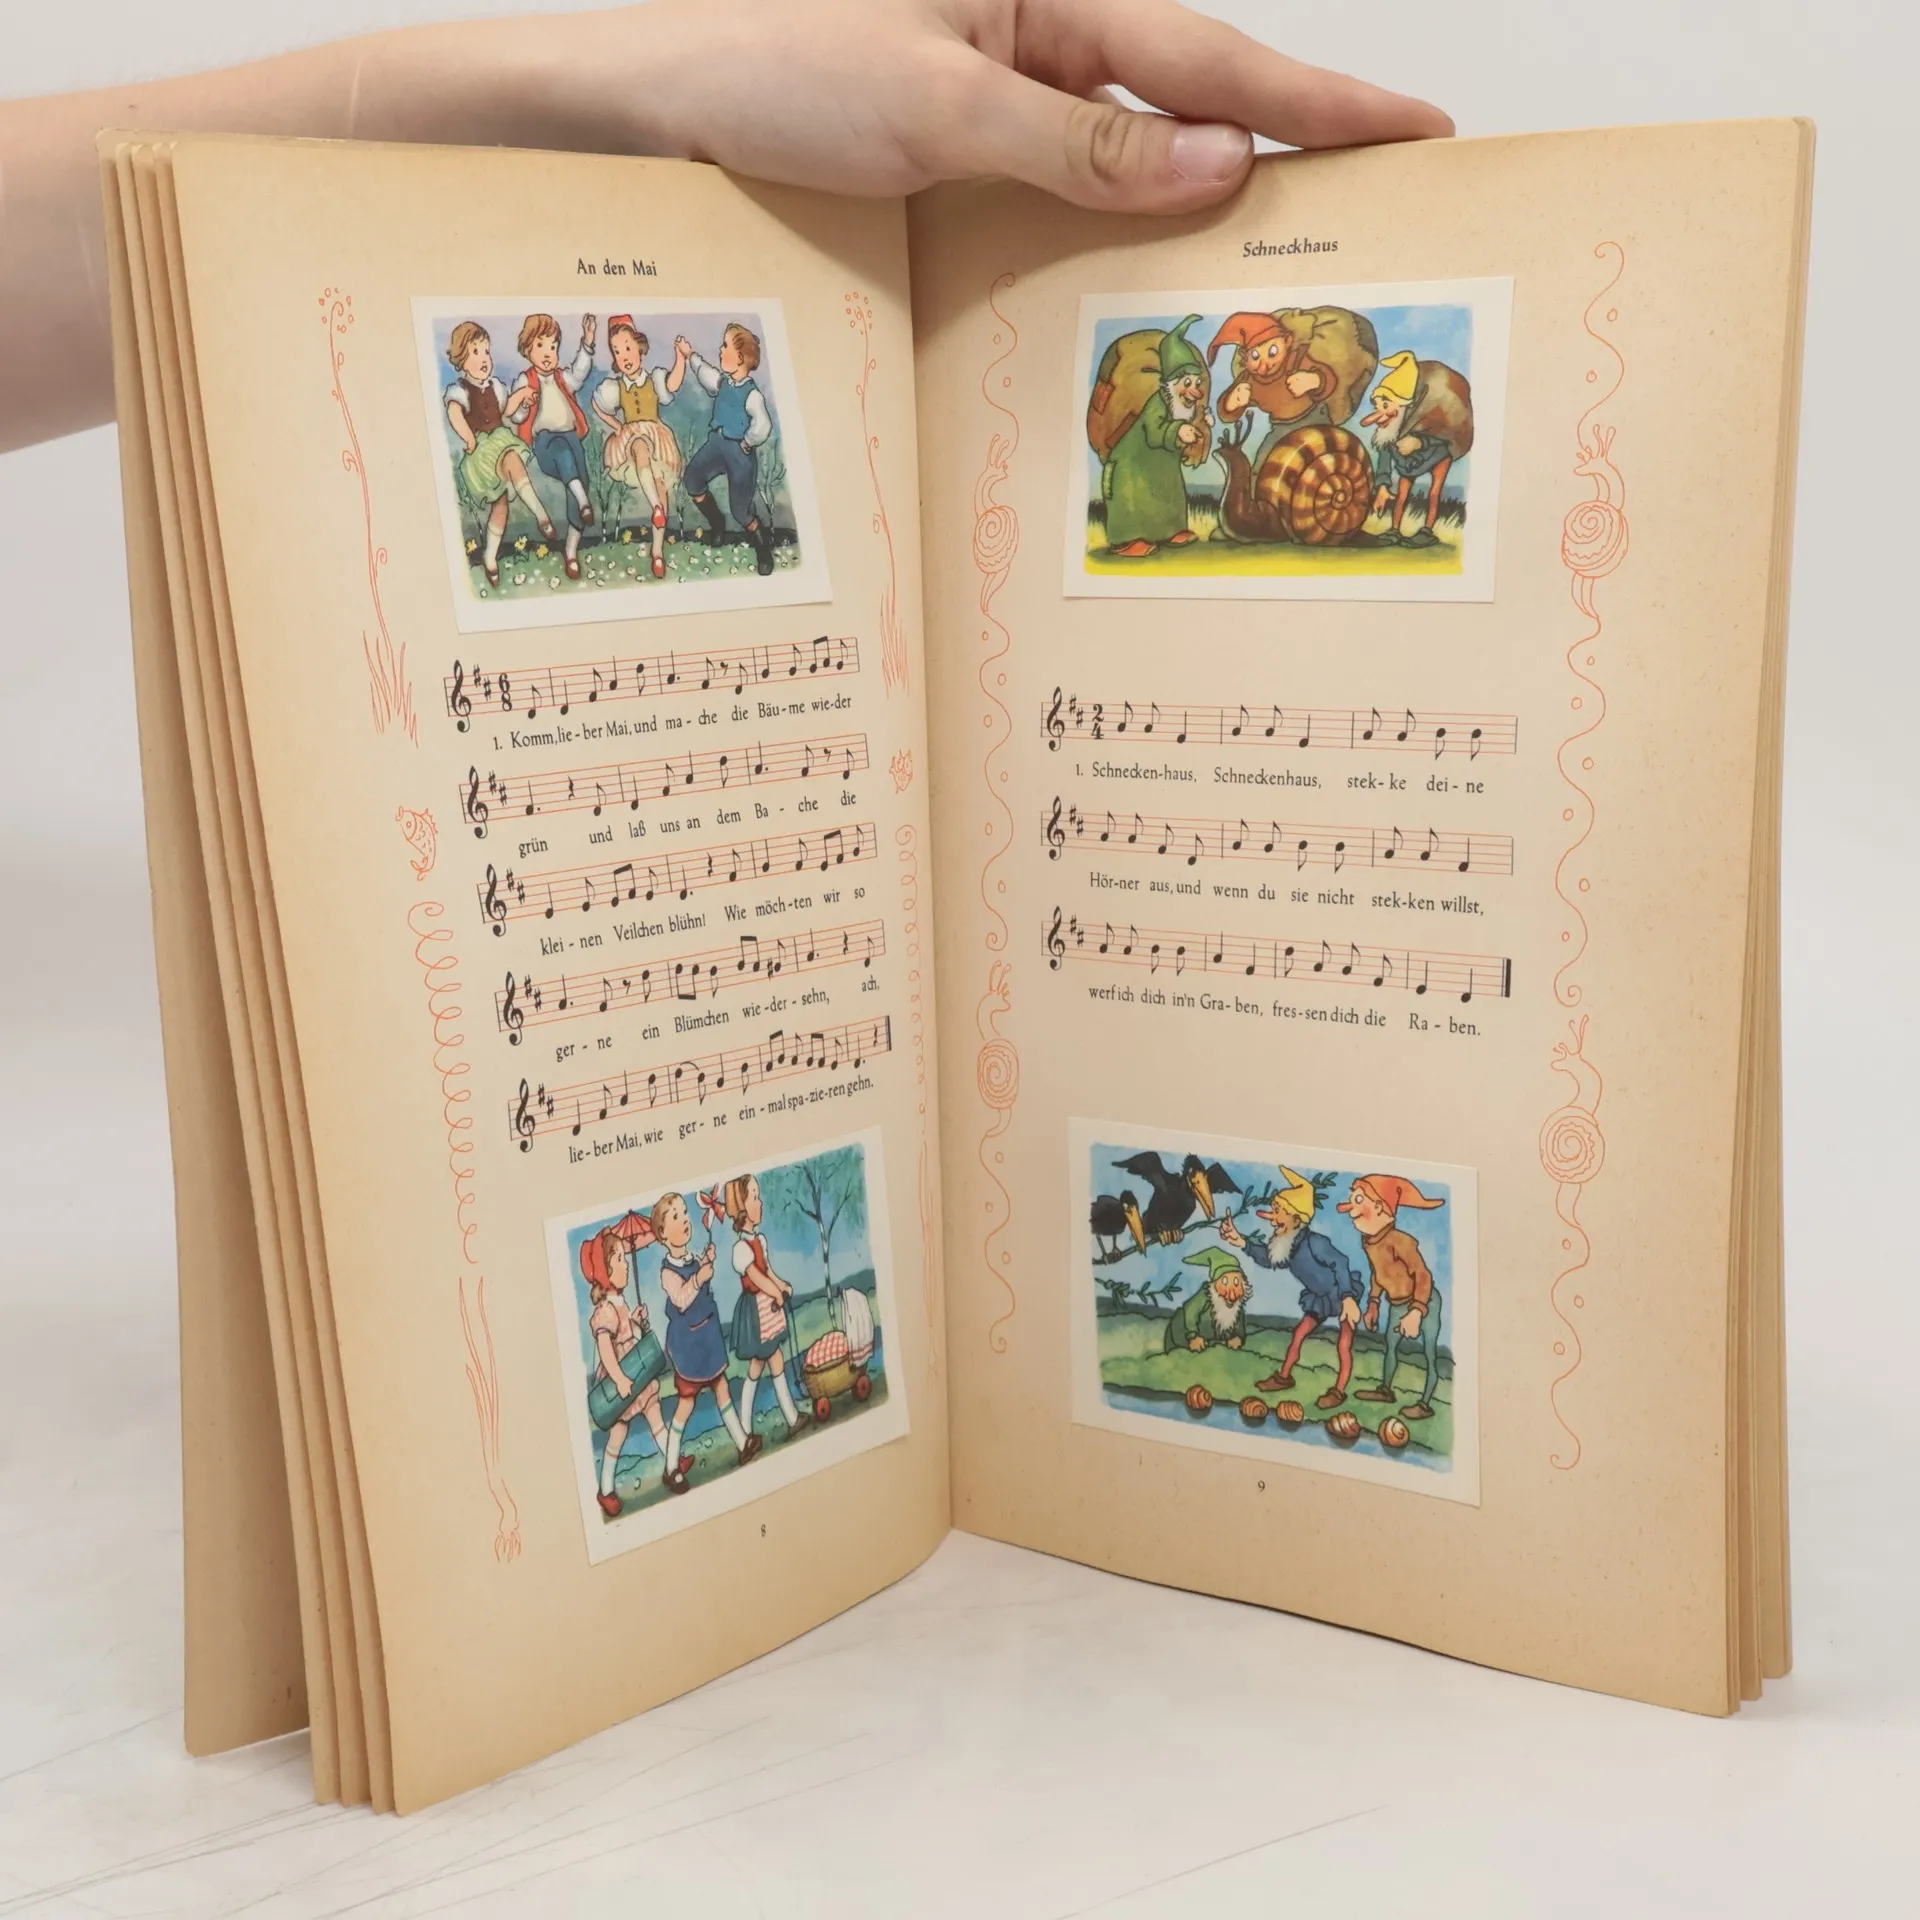 An den Mai
6
8
1. Komm, lie-ber Mai, und ma-che die Bäu-me wie-der
grün und laß uns an dem Ba-che die
klei-nen Veilchen blühn! Wie möch-ten wir so
ger-ne ein Blümchen wie-der-sehn, ach,
lie-ber Mai, wie ger-ne ein-mal spa-zie-ren gehn.
8
Schneckhaus
2
4
1. Schnecken-haus, Schneckenhaus, stek-ke dei-ne
Hör-ner aus, und wenn du sie nicht stek-ken willst,
werf ich dich in'n Gra-ben, fres-sen dich die Ra-ben.
9